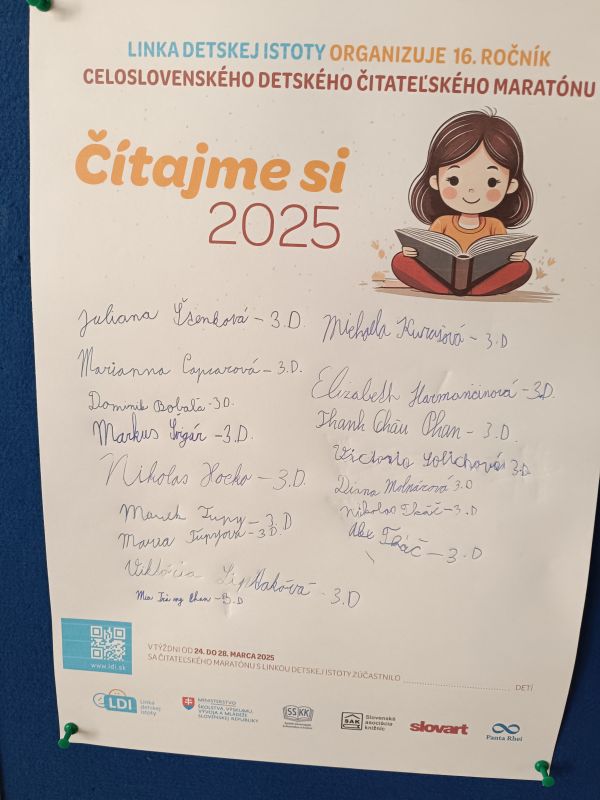 LINKA DETSKEJ ISTOTY ORGANIZUJE 16. ROČNÍK
CELOSLOVENSKÉHO DETSKÉHO ČITATEĽSKÉHO MARATÓNU
Čítajme si
2025
Juliana - 3.D.
Marianna - 3.D.
Dominik - 3D.
Markus - 3.D.
Nikolas Hocko - 3.D.
Marek Ťupy - 3.D
Mária - 3.D.
Viktória - 3.D
Mia Chan - 3.D
Michaela - 3.D
Elizabeth Harmančinová - 3.D.
Thanh Châu Phan - 3.D.
Victoria 3.D
Diana Molnárová 3.D
Nikolas Tkáč - 3.D
Alex Tkáč - 3.D
www.ldi.sk
V TÝŽDNI OD 24. DO 28. MARCA 2025
SA ČITATEĽSKÉHO MARATÓNU S LINKOU DETSKEJ ISTOTY ZÚČASTNILO DETÍ
LDI Linka detskej istoty
MINISTERSTVO
ŠKOLSTVA, VÝSKUMU,
VÝVOJA A MLÁDEŽE
SLOVENSKEJ REPUBLIKY
SAK Slovenská asociácia knižníc
slovart
Panta Rhei